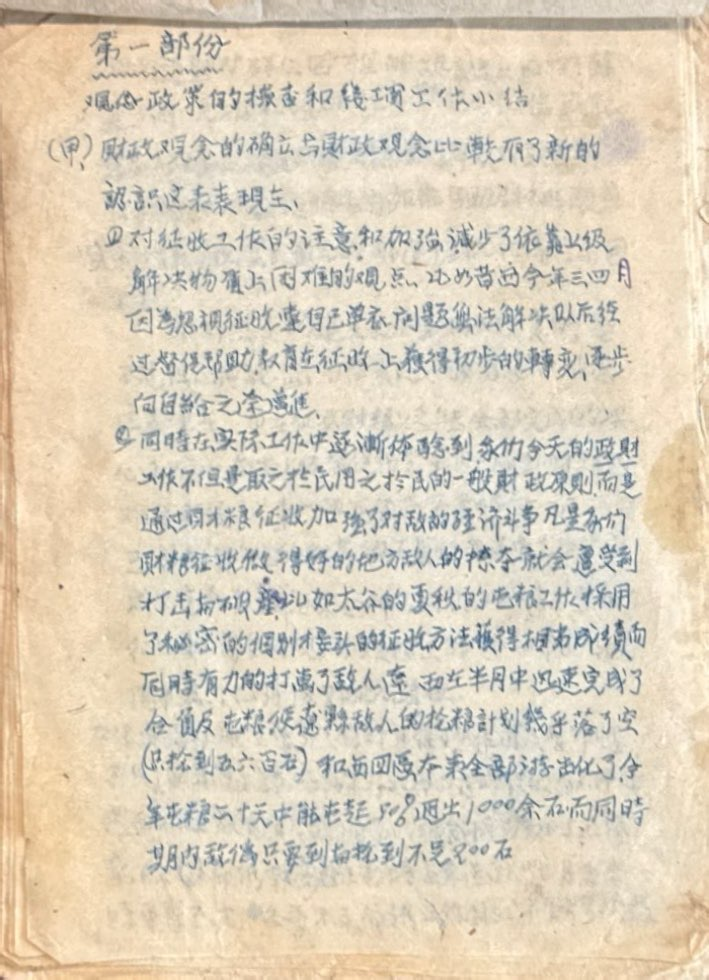 第一部份
观念政策的檢查和 工作小结
(甲)財政观念的确立与財政观念比較有了新的
認識这表表現在、
①对征收工作的注意和加強,減少了依靠上级
解决物質上困难的观点、比如昔西今年三四月
因為忽視征收連自己单衣问题無法解决以后经
过督促帮助教育在征收上獲得初步的轉变、逐步
向自给之 邁進、
②同時在实际工作中逐漸体驗到我们今天的政財
工作不但是取之於民用之於民的一般財政原則,而是
通过財粮征收加強了对敌的経济斗争凡是我们
財粮征收做得好的地方敌人的掠夺就会遭受到
打击与 比如太谷的夏秋的屯粮工作採用
了秘密的個别 的征收方法獲得相当成績而
同時有力的打 了敌人 西在半月中迅速完成了
全 屯粮使遼縣敌人的抢粮計划幾乎落了空
(只抢到五六百石)和西四区本来全部 化了今
年屯粮二十天中能屯起50% 出1000余石而同時
期内敌偽只要到与抢到不足200石